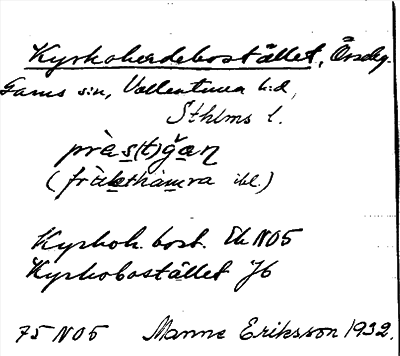 Kyrkoherdebostället, Össeby-
Garns sn, Vallentuna hd,
Sthlms l.
präs(t)găn
(fräkthamra ibl.)
Kyrkoh. bost. Ek N05
Kyrkobostället Jb
75 N05 Manne Eriksson 1932.